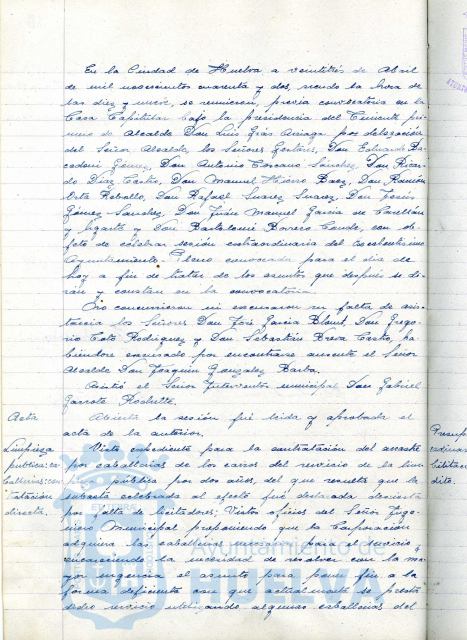 En la Ciudad de Huelva a veintitrés de Abril
de mil novecientos cuarenta y dos, siendo la hora de
las diez y nueve, se reunieron, previa convocatoria en la
Casa Capitular bajo la presidencia del Teniente pri-
mero de Alcalde Don Luis Grás Arriaga por delegación
del Señor Alcalde, los Señores Gestores, Don Eduardo Ba-
cedoni Gómez, Don Antonio Corcano Sánchez, Don Ricar-
do Díaz Castro, Don Manuel Hierro Baez, Don Ramón
Orta Rebollo, Don Rafael Suarez Suarez, Don Jesús
Gómez Sánchez, Don Juan Manuel García de Castellón
y Ugarte y Don Bartolomé Borrero Conde, con ob-
jeto de celebrar sesión extraordinaria del Excelentísimo
Ayuntamiento Pleno convocada para el día de
hoy a fin de tratar de los asuntos que después se di-
rán y constan en la convocatoria.
No concurrieron ni excusaron su falta de asis-
tencia los Señores Don José García Blount, Don Grego-
rio Coto Rodriguez y Don Sebastián Breva Castro, ha-
biéndose excusado por encontrarse ausente el Señor
Alcalde Don Joaquín Gonzalez Barba.
Asistió el Señor Interventor municipal Don Gabriel
Garrote Rochette.
Acta
Abierta la sesión fué leída y aprobada el
acta de la anterior.
Limpieza
pública: ca-
ballerías: con-
tratación
directa.
Visto expediente para la contratación del arrastre
por caballerías de los carros del servicio de la lim-
pieza pública por dos años, del que resulta que la
subasta celebrada al efecto fué declarada desierta
por falta de licitadores; Vistos oficios del Señor Inge-
niero Municipal proponiendo que la Corporación
adquiera las caballerías necesarias para el servicio y
encareciendo la necesidad de resolver con la ma-
yor urgencia el asunto para poner fin a la
forma deficiente con que actualmente se presta
dicho servicio utilizando algunas caballerías del
Presup
Ayuntamiento de
HUELVA